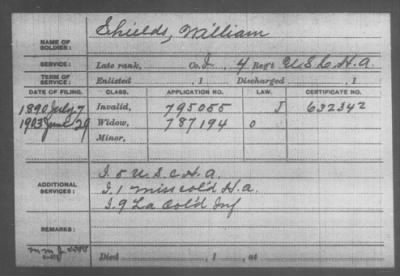 NAME OF SOLDIER: Shields, William
SERVICE: Late rank, Co. I, 4 Reg't U S C H A
TERM OF SERVICE: Enlisted , 1 Discharged , 1
DATE OF FILING. CLASS. APPLICATION NO. LAW. CERTIFICATE NO.
1890 July 7 Invalid, 795055 J 632342
1903 June 29 Widow, 787194 o
Minor,
ADDITIONAL SERVICES: I. 5 U. S. C. H. A.
I. 1 Miss col'd H. a.
I. 9 La Col'd Inf
REMARKS:
Died , 1 , at